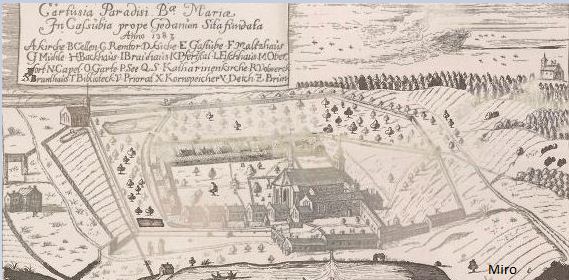 Cartusia Paradisi Bæ Mariæ
In Cassubia prope Gedanum Sita fundata
Anno 1383
A Kirche B Cellen G Remtor D Küche E Gastube F Maltzhaus
G Mühle H Backhaus I Brauhaus K Pferstal L M Ober
N Capel O Garte P See Q S Katharinenkirche R
S Brunhaus T Bibliateck V Priorat X Kornspeicher Y Deich Z Brun
Miro